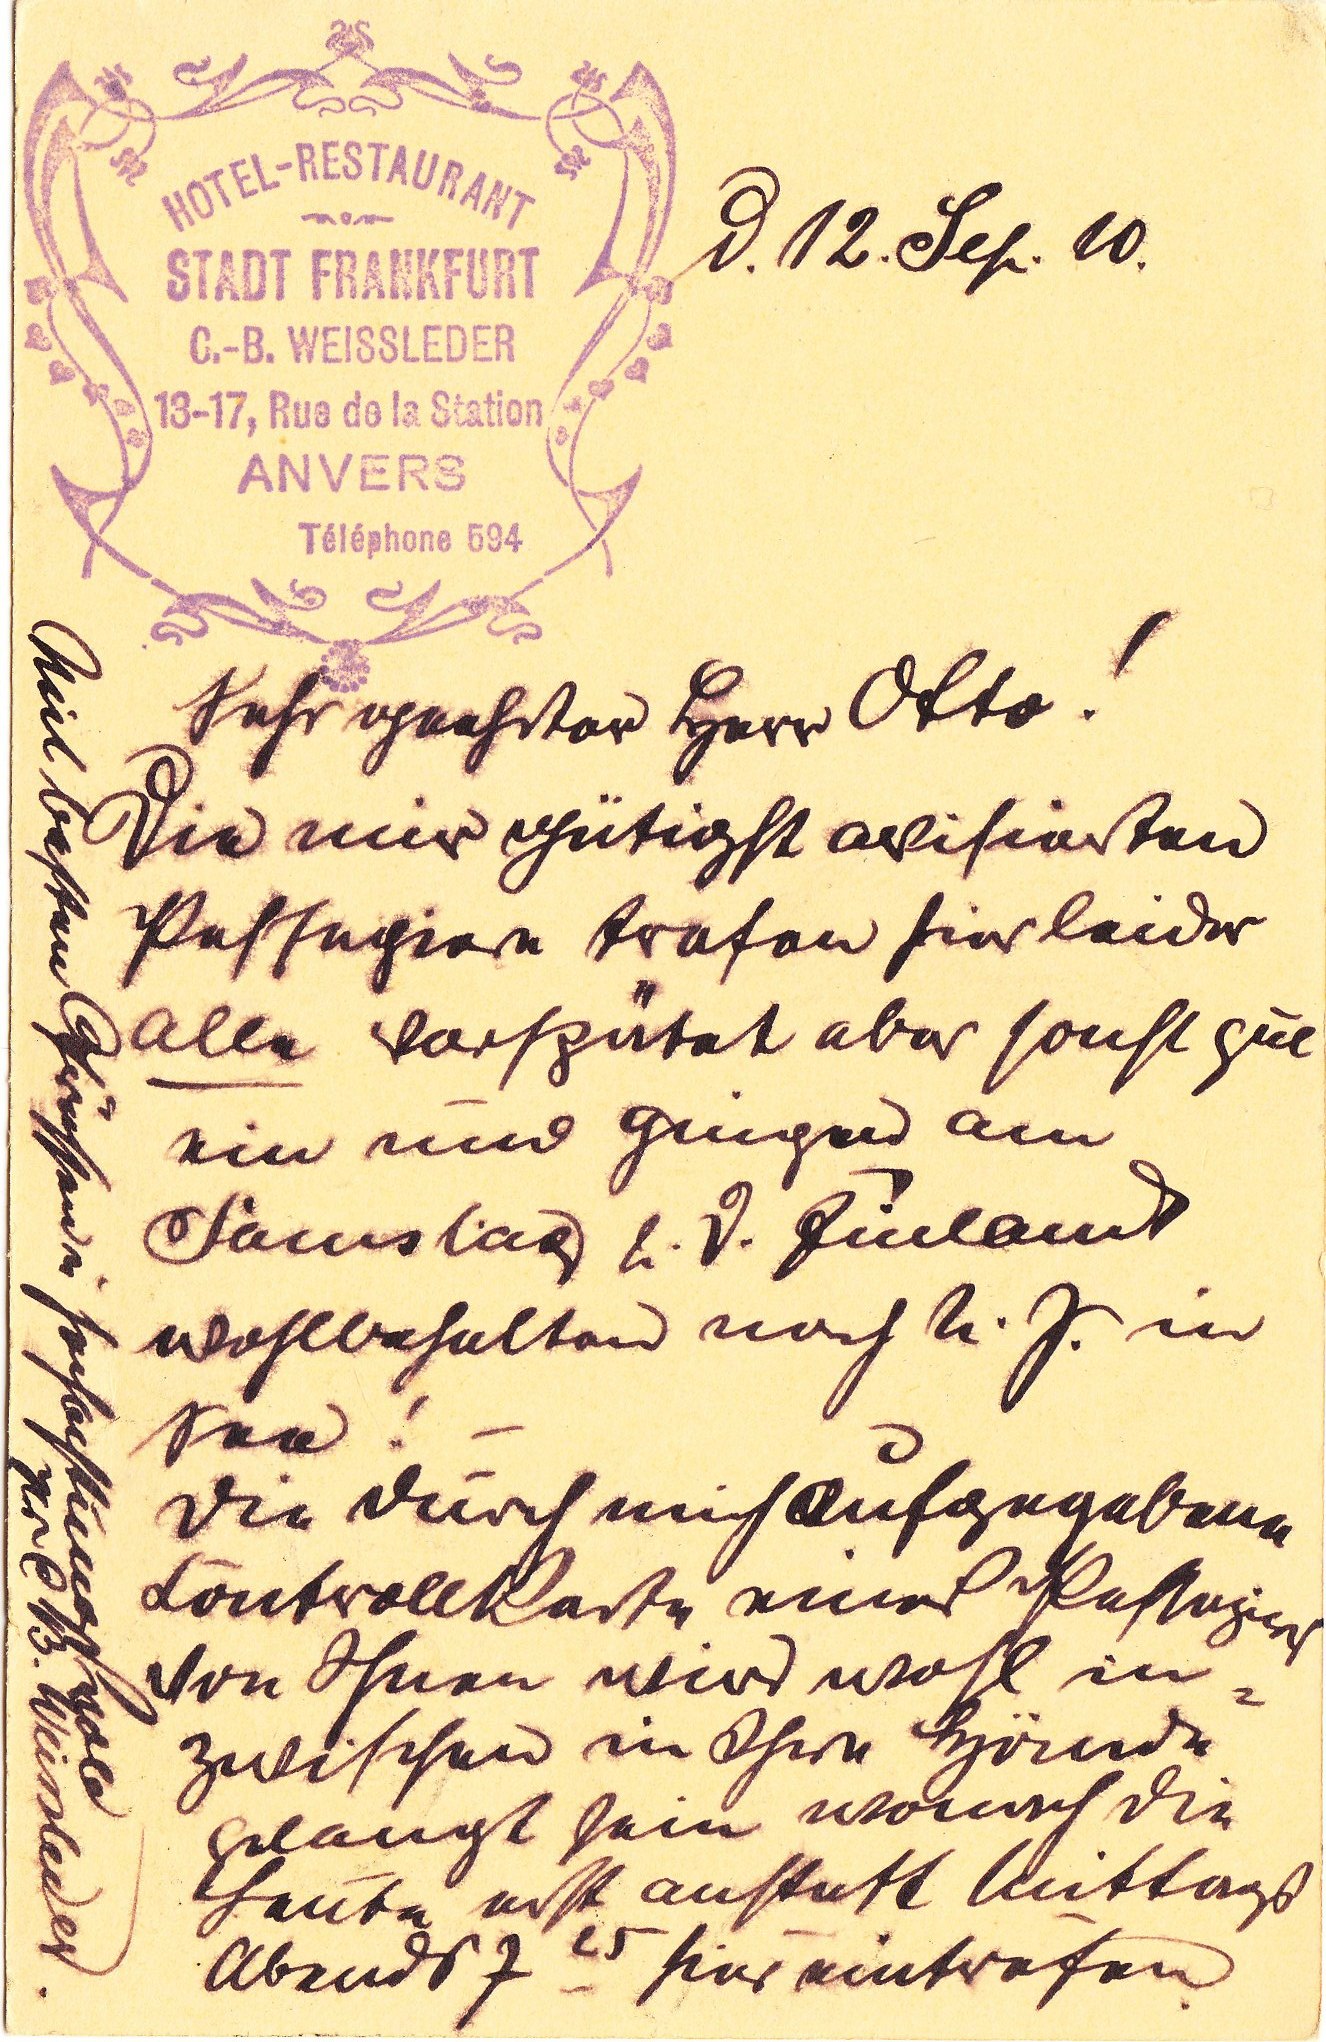 HOTEL-RESTAURANT
STADT FRANKFURT
C.-B. WEISSLEDER
13-17, Rue de la Station
ANVERS
Téléphone 594
D. 12. Sep. 10.
Sehr geehrter Herr Otto!
Die mir gütigst avisierten
Passagiere trafen hier leider
alle verspätet aber sonst gut
ein und gingen am
Samstag p. D. Finland
wohlbehalten nach N. Y. in
See! –
Die durch mich aufgegebene
Controllkarte eines Passagiers
von Ihnen wird wohl in-
zwischen in Ihre Hände
gelangt sein wonach die
Leute erst anstatt Mittags
Abends 7 25 hier eintrafen
Mit besten Grüssen hochachtungsvoll
C B. Weissleder.